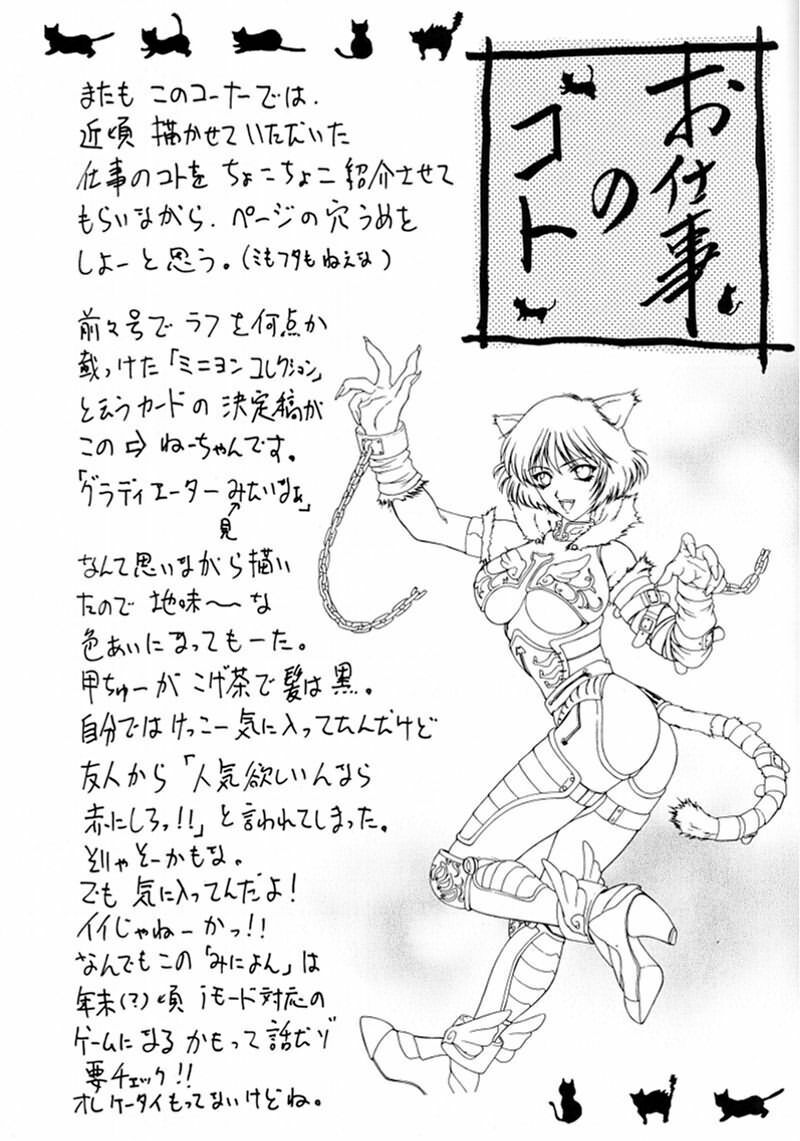 お仕事
の
コト
またも このコーナーでは、
近頃 描かせていただいた
仕事のコトを ちょこちょこ紹介させて
もらいながら、ページの穴うめを
しよーと思う。(ミもフタもねえな)
前々号で ラフを何点か
載っけた「ミニヨン コレクション」
と云うカードの 決定稿が
この⇨ ねーちゃんです。
「グラディエーター みたいなぁ」
見
なんて思いながら描い
たので 地味〜〜な
色あいになってもーた。
甲ちゅーが こげ茶で髪は黒。
自分ではけっこー気に入ってたんだけど
友人から「人気欲しいんなら
赤にしろっ!!」と言われてしまった。
そりゃそーかもな。
でも 気に入ってんだよ!
イイじゃねーかっ!!
なんでもこの「みによん」は
年末(?)頃 iモード対応の
ゲームになる かもって話だゾ
要チェック!!
オレケータイもってないけどね。